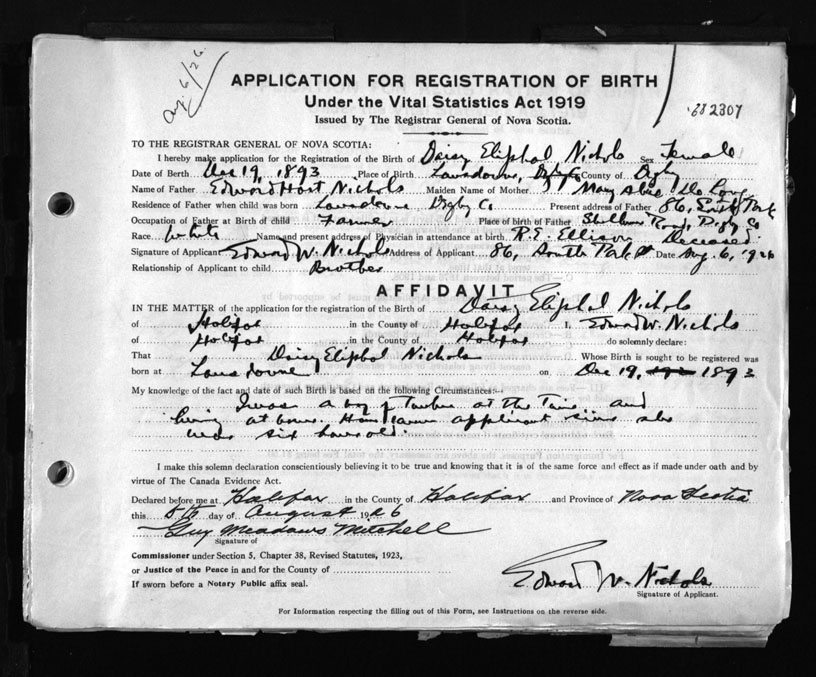 Aug. 6/26.
APPLICATION FOR REGISTRATION OF BIRTH
Under the Vital Statistics Act 1919
Issued by The Registrar General of Nova Scotia.
2307
TO THE REGISTRAR GENERAL OF NOVA SCOTIA:
I hereby make application for the Registration of the Birth of Daisy Eliphal Nichols Sex Female
Date of Birth Dec 19, 1893 Place of Birth Lansdowne, County of Digby
Name of Father Edward Hart Nichols Maiden Name of Mother De Long
Residence of Father when child was born Lansdowne Digby Co Present address of Father 86, South Park
Occupation of Father at Birth of child Farmer Place of birth of Father Road, Digby Co
Race White Name and present address of Physician in attendance at birth R.E. Ellison Deceased.
Signature of Applicant Edward W. Nichols Address of Applicant 86, South Park St Date Aug. 6, 1926
Relationship of Applicant to child Brother
AFFIDAVIT
IN THE MATTER of the application for the registration of the Birth of Daisy Eliphal Nichols
of Halifax in the County of Halifax I, Edward W. Nichols
of Halifax in the County of Halifax do solemnly declare:
That Daisy Eliphal Nichols Whose Birth is sought to be registered was
born at Lansdowne on Dec 19, 1893
My knowledge of the fact and date of such Birth is based on the following Circumstances:—
I was a boy of twelve at the time and
living at home. Have known applicant since she
was six hours old.
I make this solemn declaration conscientiously believing it to be true and knowing that it is of the same force and effect as if made under oath and by
virtue of The Canada Evidence Act.
Declared before me at Halifax in the County of Halifax and Province of Nova Scotia
this day of August 1926
Guy Meadows Mitchell
Signature of
Commissioner under Section 5, Chapter 38, Revised Statutes, 1923,
or Justice of the Peace in and for the County of
If sworn before a Notary Public affix seal.
Edward W. Nichols
Signature of Applicant.
For Information respecting the filling out of this Form, see Instructions on the reverse side.